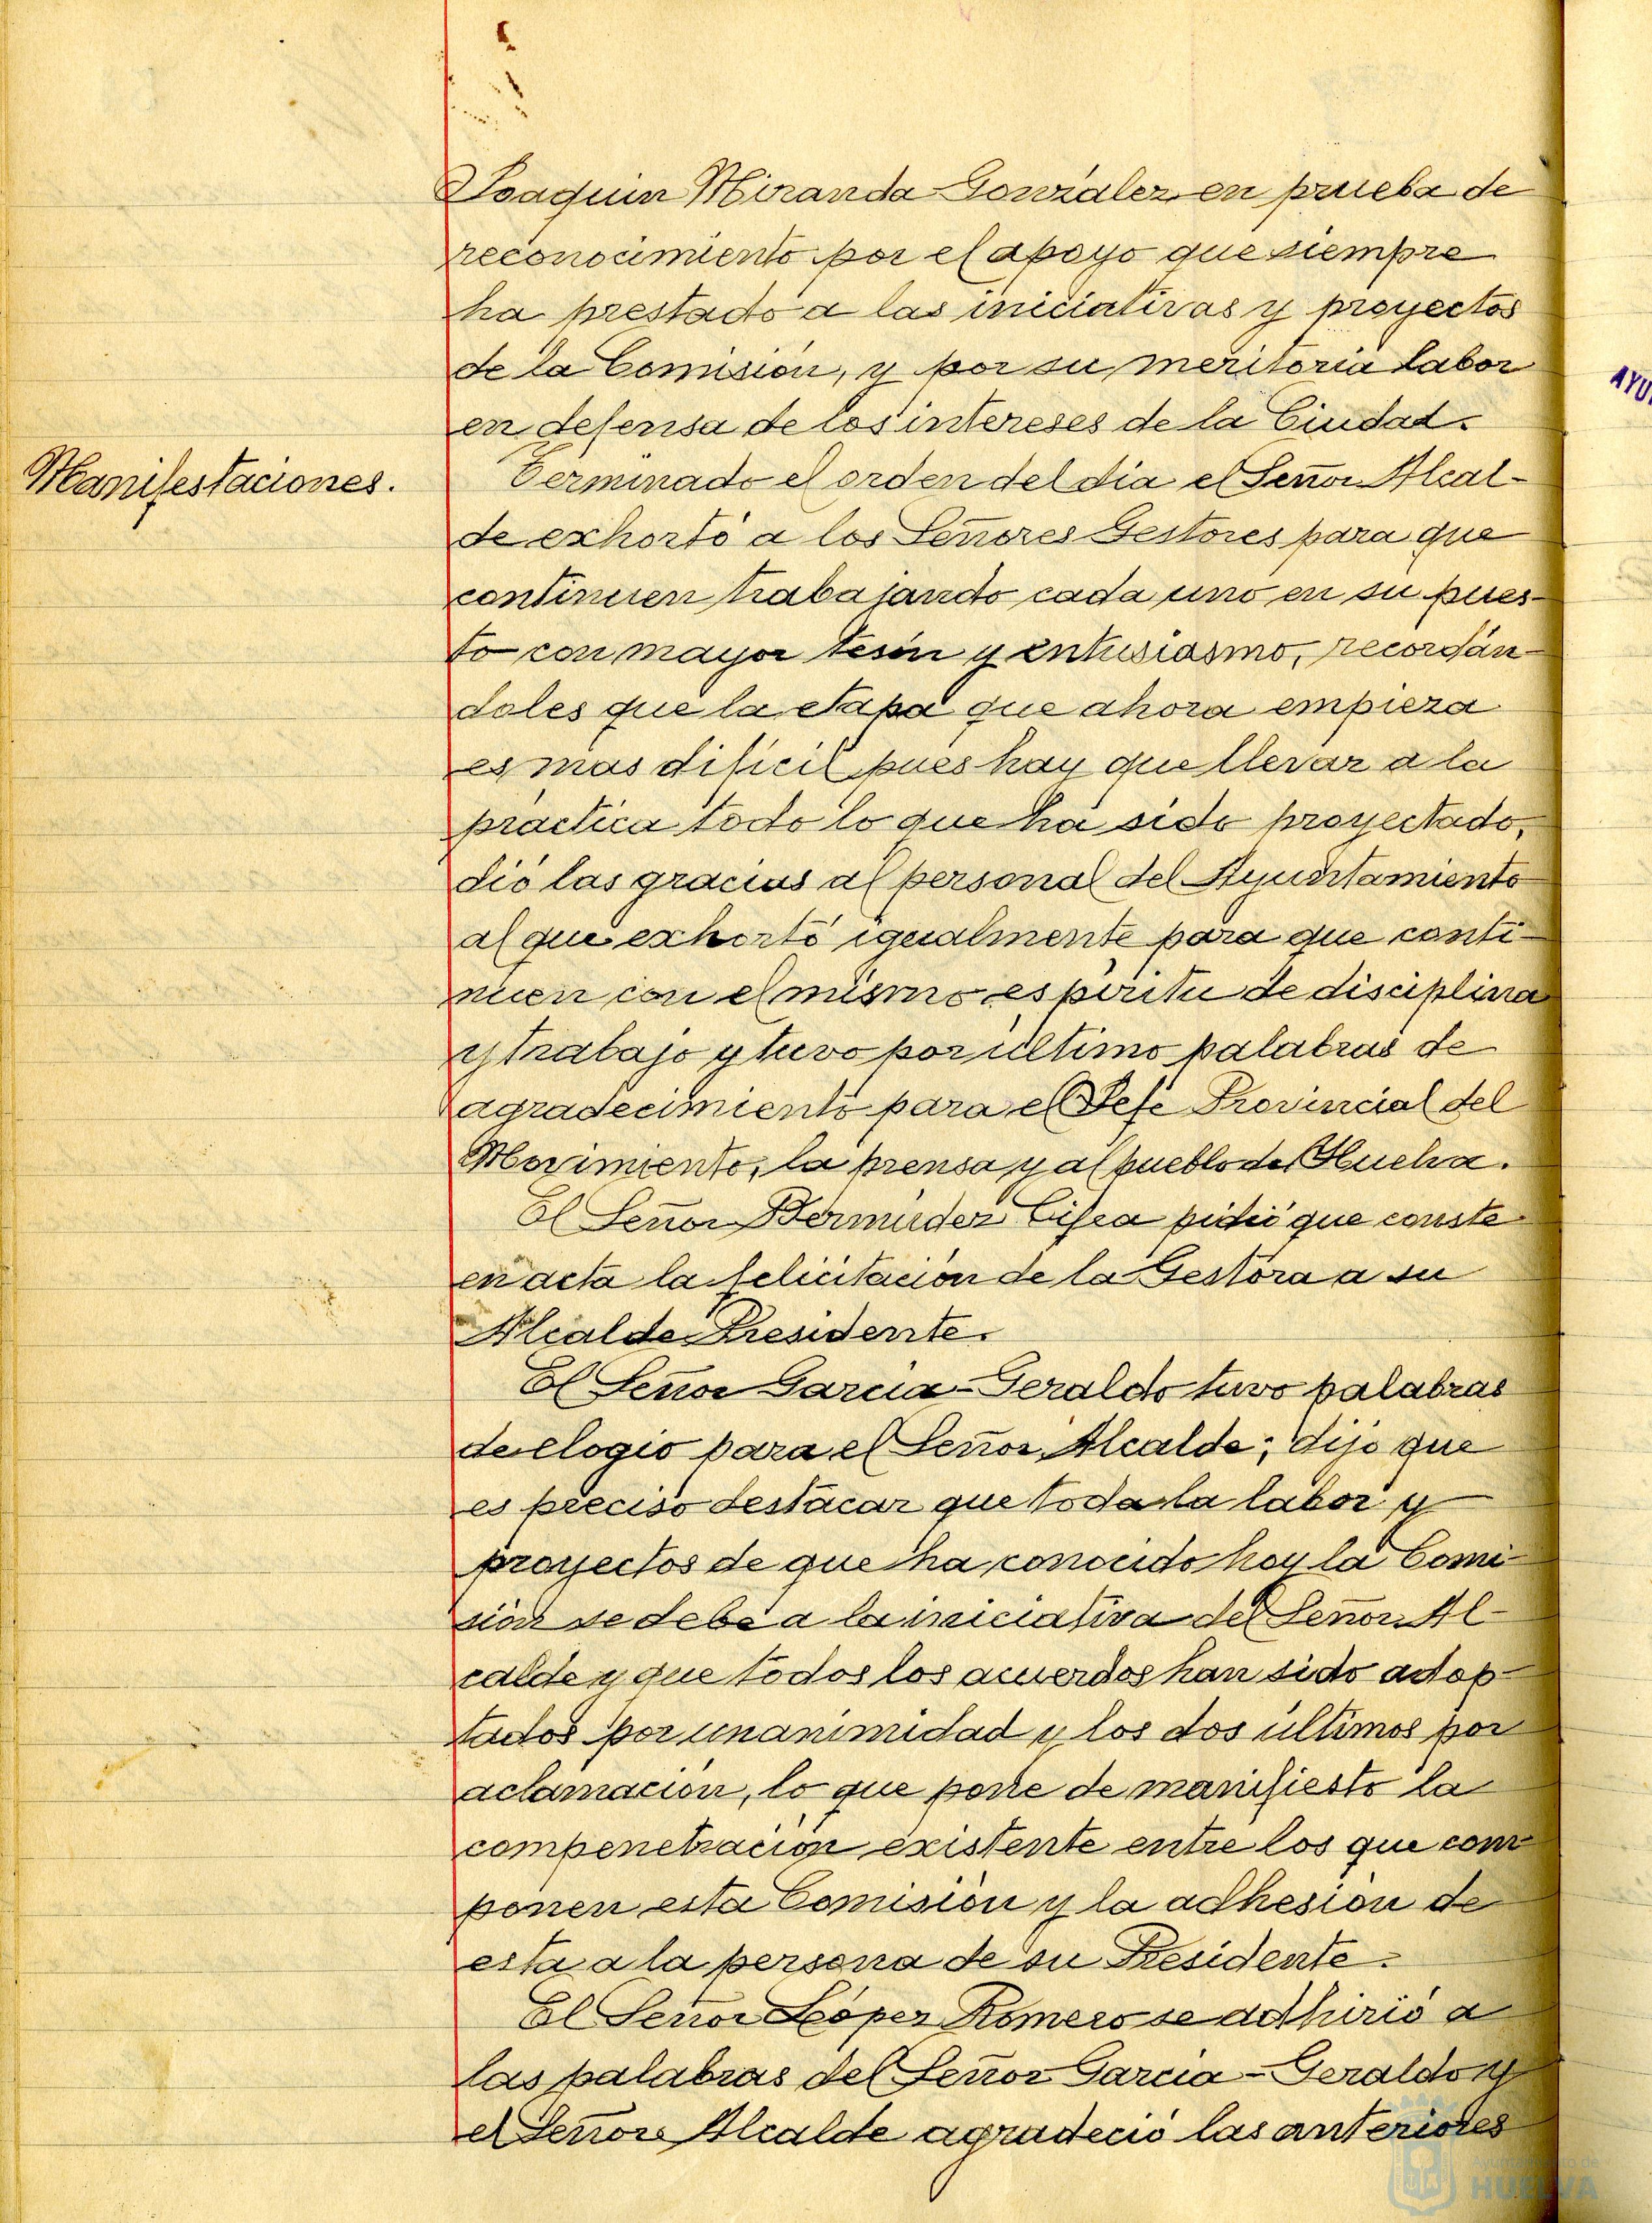 Joaquin Miranda Gonzalez en prueba de
reconocimiento por el apoyo que siempre
ha prestado a las iniciativas y proyectos
de la Comisión, y por su meritoria labor
en defensa de los intereses de la Ciudad.
Manifestaciones.
Terminado el orden del dia el Señor Alcal-
de exhortó a los Señores Gestores para que
continuen trabajando cada uno en su pues-
to con mayor tesón y entusiasmo, recordán-
doles que la etapa que ahora empieza
es mas dificil pues hay que llevar a la
practica todo lo que ha sido proyectado,
dió las gracias al personal del Ayuntamiento
al que exhortó igualmente para que conti-
nuen con el mismo espiritu de disciplina
y trabajo y tuvo por último palabras de
agradecimiento para el Jefe Provincial del
Movimiento, la prensa y al pueblo de Huelva.
El Señor Bermúdez Cifea pidió que conste
en acta la felicitación de la Gestora a su
Alcalde Presidente.
El Señor Garcia-Geraldo tuvo palabras
de elogio para el Señor Alcalde; dijo que
es preciso destacar que toda la labor y
proyectos de que ha conocido hoy la Comi-
sión se debe a la iniciativa del Señor Al-
calde y que todos los acuerdos han sido adop-
tados por unanimidad y los dos últimos por
aclamación, lo que pone de manifiesto la
compenetración existente entre los que com-
ponen esta Comisión y la adhesión de
esta a la persona de su Presidente.
El Señor López Romero se adhirió a
las palabras del Señor Garcia-Geraldo y
el Señor Alcalde agradeció las anteriores
AYU
Ayuntamiento de
HUELVA